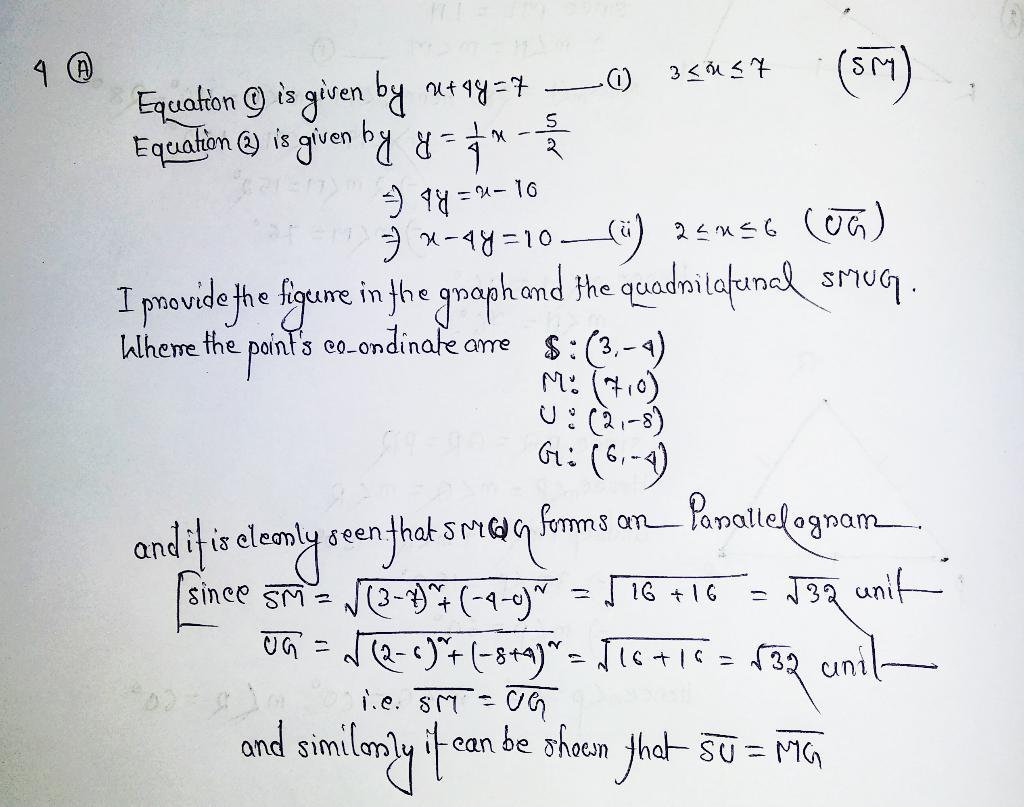 4 Ⓐ
Equation ① is given by x+4y=7 —(i) 3≤x≤7 (SM)
Equation ② is given by y = 1/4 x - 5/2
⇒ 4y = x - 10
⇒ x - 4y = 10 —(ii) 2≤x≤6 (UG)
I provide the figure in the graph and the quadrilateral SMUG.
Where the point's co-ordinate are S: (3,-4)
M: (7,0)
U: (2,-8)
G: (6,-4)
and it is clearly seen that SMUG forms an Parallelogram.
[since SM = √(3-7)²+(-4-0)² = √16+16 = √32 unit
UG = √(2-6)²+(-8+4)² = √16+16 = √32 unit
i.e. SM = UG
and similarly it can be shown that SU = MG